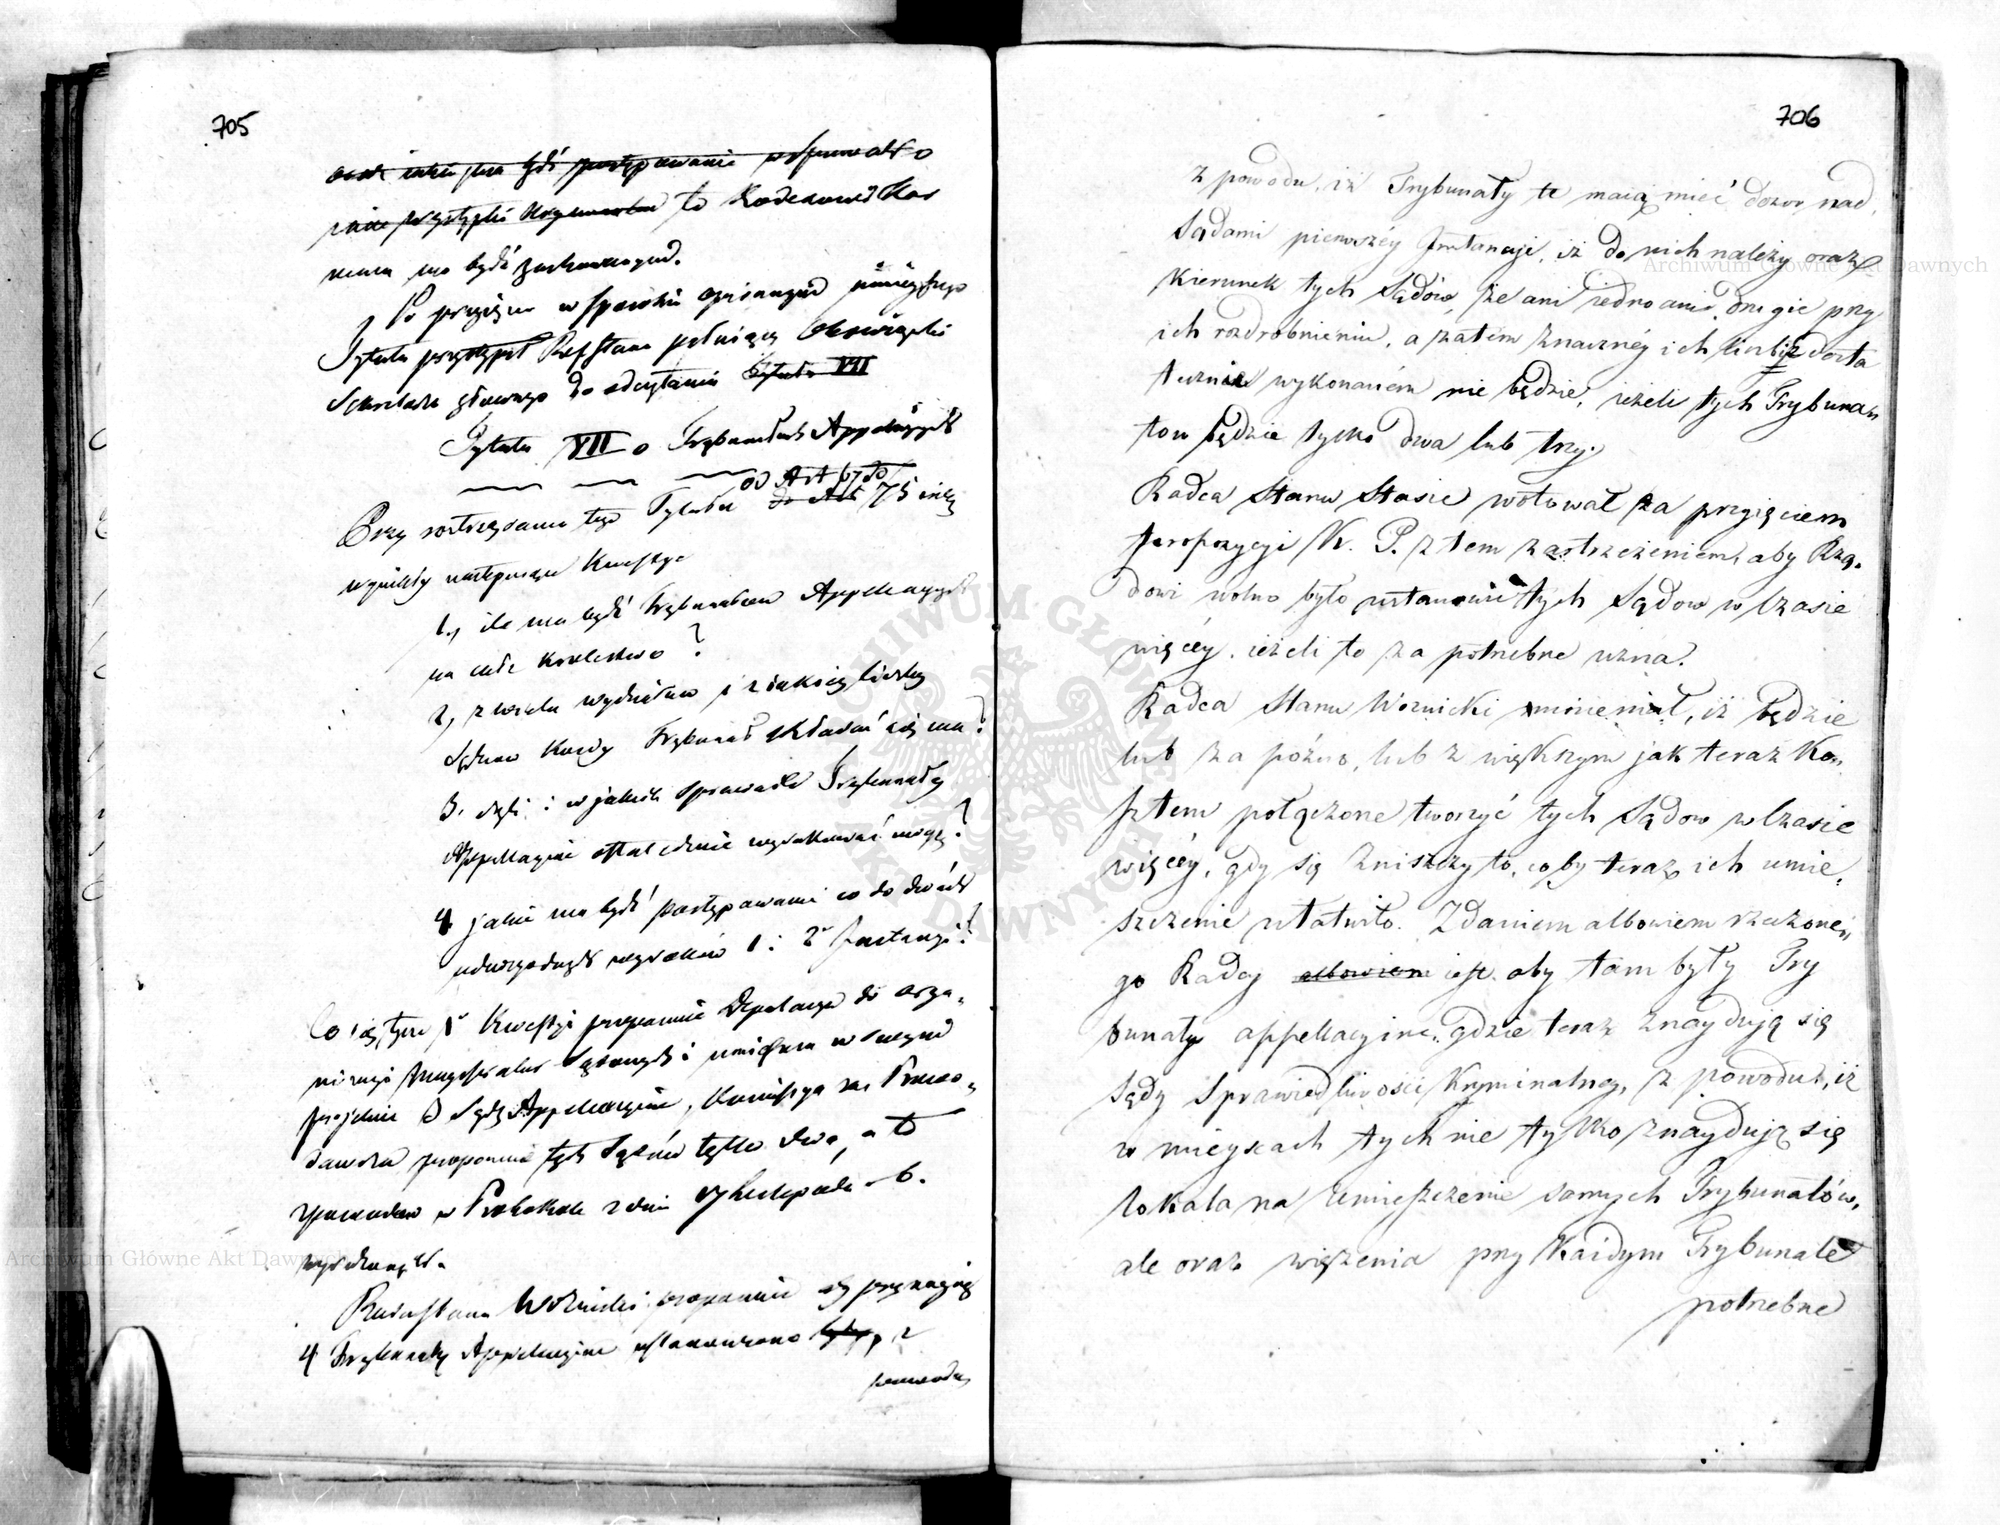 705
to Kodexowi Kar
nemu ma bydź zachowaną.
Po przyięciu w sposobie opisanym ninieyszego
Tytułu przystąpił Ref. Stanu pełniący obowiązki
Sekretarza głównego do odczytania Tytułu VII
Tytułu VII o Trybunałach Appellacyinych
od Art 67 do
Przy roztrząsaniu tego Tytułu do Art 75 incl.
wynikły następuiące Kwestye
1., ile ma bydź Trybunałów Appellacyinych
na całe Królestwo ?
2, z wielu wydziałów i z iakiey liczby
Sędziów każdy Trybunał składać się ma ?
3. czyli i w jakich sprawach Trybunały
Appellacyine ostatecznie wyrokować mogą ?
4 jakie ma bydź postępowanie co do dwóch
wyroków 1 i 2 Instancyi ?
Co się tycze 1 Kwestyi proponuie Deputacya do orga-
nizacyi Magistratur Sądowych i umieściła w swoym
projekcie 3 Sądy Appellacyine, Komissya zaś Prawo-
dawcza proponuie tych Sądów tylko dwa, a to
z powodów w Protokole z dnia Listopada r. b.
wyrażonych.
Radca Stanu Woźnicki proponuie aby przynaymniey
4 Trybunały Appellacyine ustanowiono były, z
powodu
706
z powodu, iż Trybunały te maią mieć dozor nad
Sądami pierwszéy Instancyi, iż do nich należy oraz
kierunek tych Sądów, że ani iedno ani drugie przy
ich rozdrobnieniu, a zatem znacznéy ich liczbie dosta
tecznie wykonaném nie będzie, ieżeli tych Trybuna-
łow będzie tylko dwa lub trzy.
Radca Stanu Stasic wotował za przyięciem
propozycyi K. P. z tem zastrzeżeniem, aby Rzą-
dowi wolno było ustanowić tych Sądow w czasie
więcéy, ieżeli to za potrzebne uzna.
Radca Stanu Woznicki mniemał, iż będzie
lub za poźno, lub z większym jak teraz ko-
sztem połączone tworzyć tych Sądow w czasie
więcéy, gdy się zniszczy to, coby teraz ich umie-
szczenie ułatwiło. Zdaniem albowiem rzeczone-
go Radcy albowiem iest, aby tam były Try
bunały appellacyine, gdzie teraz znayduią się
Sądy Sprawiedliwości Kryminalney, z powodu, iż
w mieyscach tych nie tylko znayduią się
lokala na umieszczenie samych Trybunałów,
ale oraz więzienia przy każdym Trybunale
potrzebne
Archiwum Główne Akt Dawnych